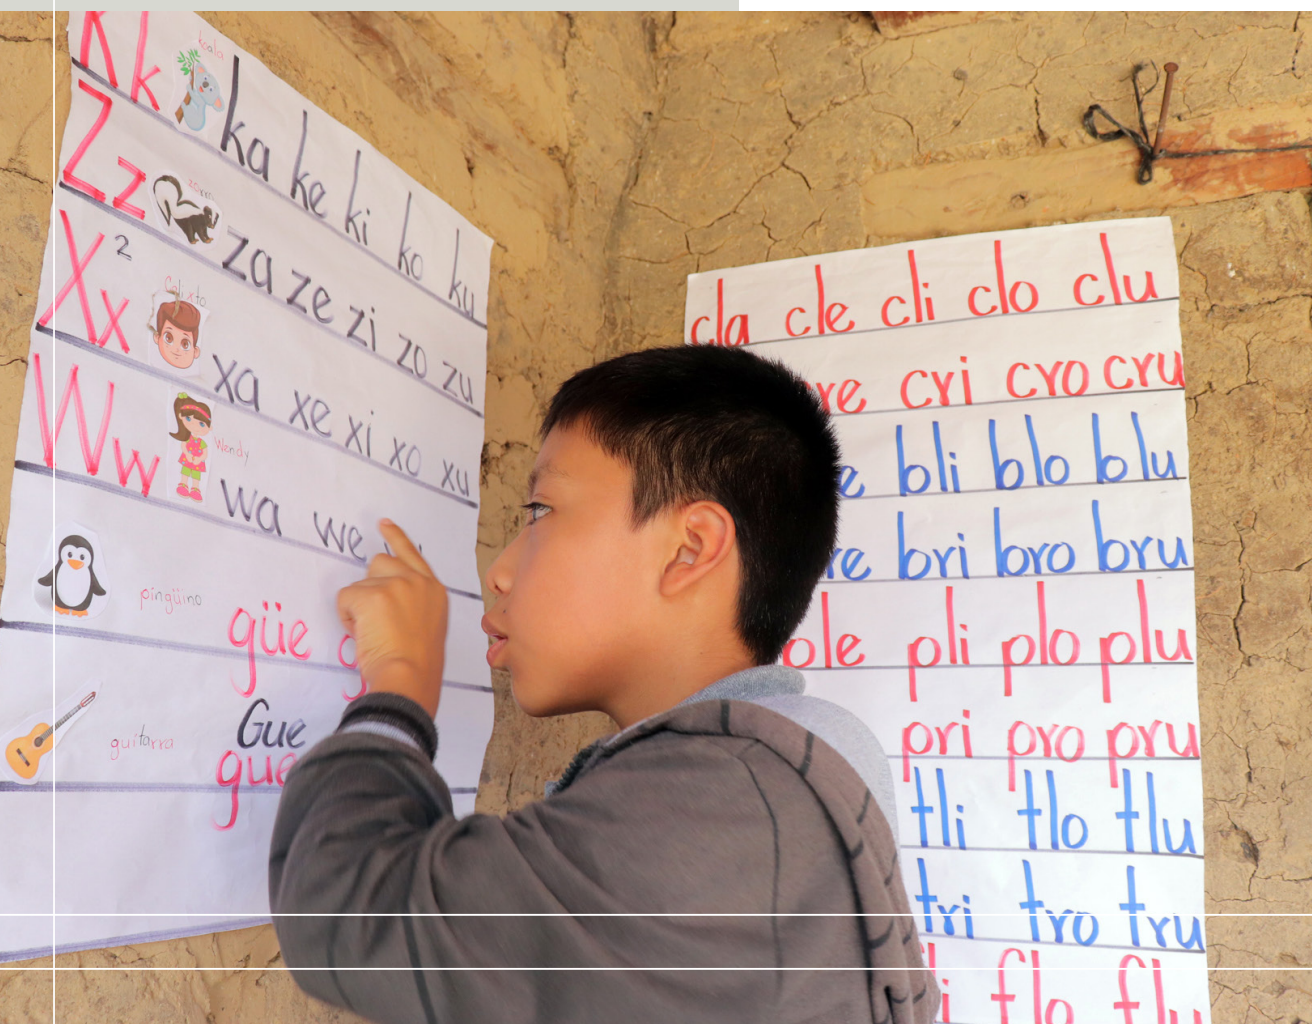 Kk koala ka ke ki ko ku
Zz zorro za ze zi zo zu
Xx 2 Calixto xa xe xi xo xu
Ww Wendy wa we
pingüino güe
guitarra Gue
gue
cla cle cli clo clu
cri cro cru
bli blo blu
bri bro bru
ple pli plo plu
pri pro pru
tli tlo tlu
tri tro tru
flo flu